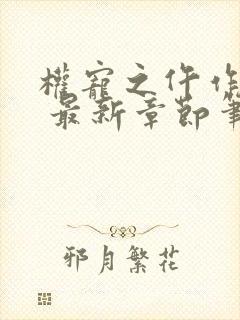 權寵之仵作
最新章節筆
邪月繁花